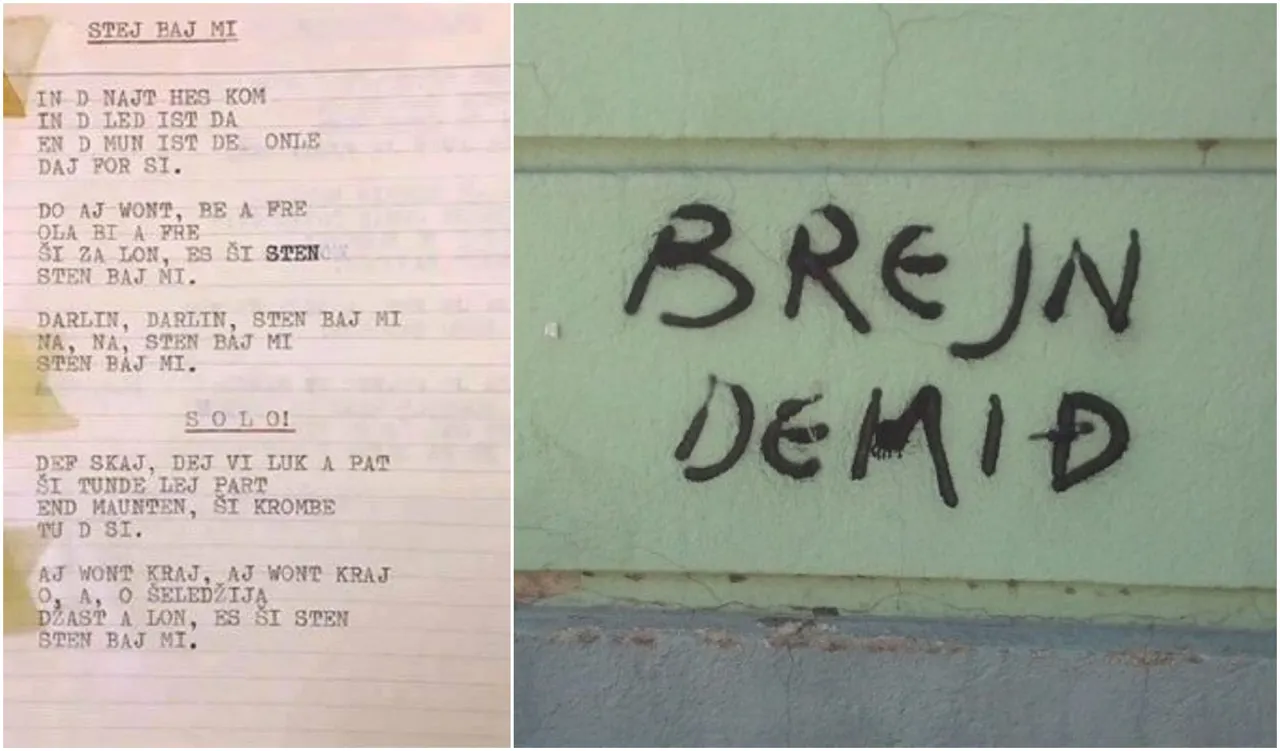 STEJ BAJ MI
IN D NAJT HES KOM
IN D LED IST DA
EN D MUN IST DE ONLE
DAJ FOR SI.
DO AJ WONT, BE A FRE
OLA BI A FRE
ŠI ZA LON, ES ŠI STEN
STEN BAJ MI.
DARLIN, DARLIN, STEN BAJ MI
NA, NA, STEN BAJ MI
STEN BAJ MI.
S O L O!
DEF SKAJ, DEJ VI LUK A PAT
ŠI TUNDE LEJ PART
END MAUNTEN, ŠI KROMBE
TU D SI.
AJ WONT KRAJ, AJ WONT KRAJ
O, A, O ŠELEDŽIJA
DŽAST A LON, ES ŠI STEN
STEN BAJ MI.
BREJN
DEMIĐ